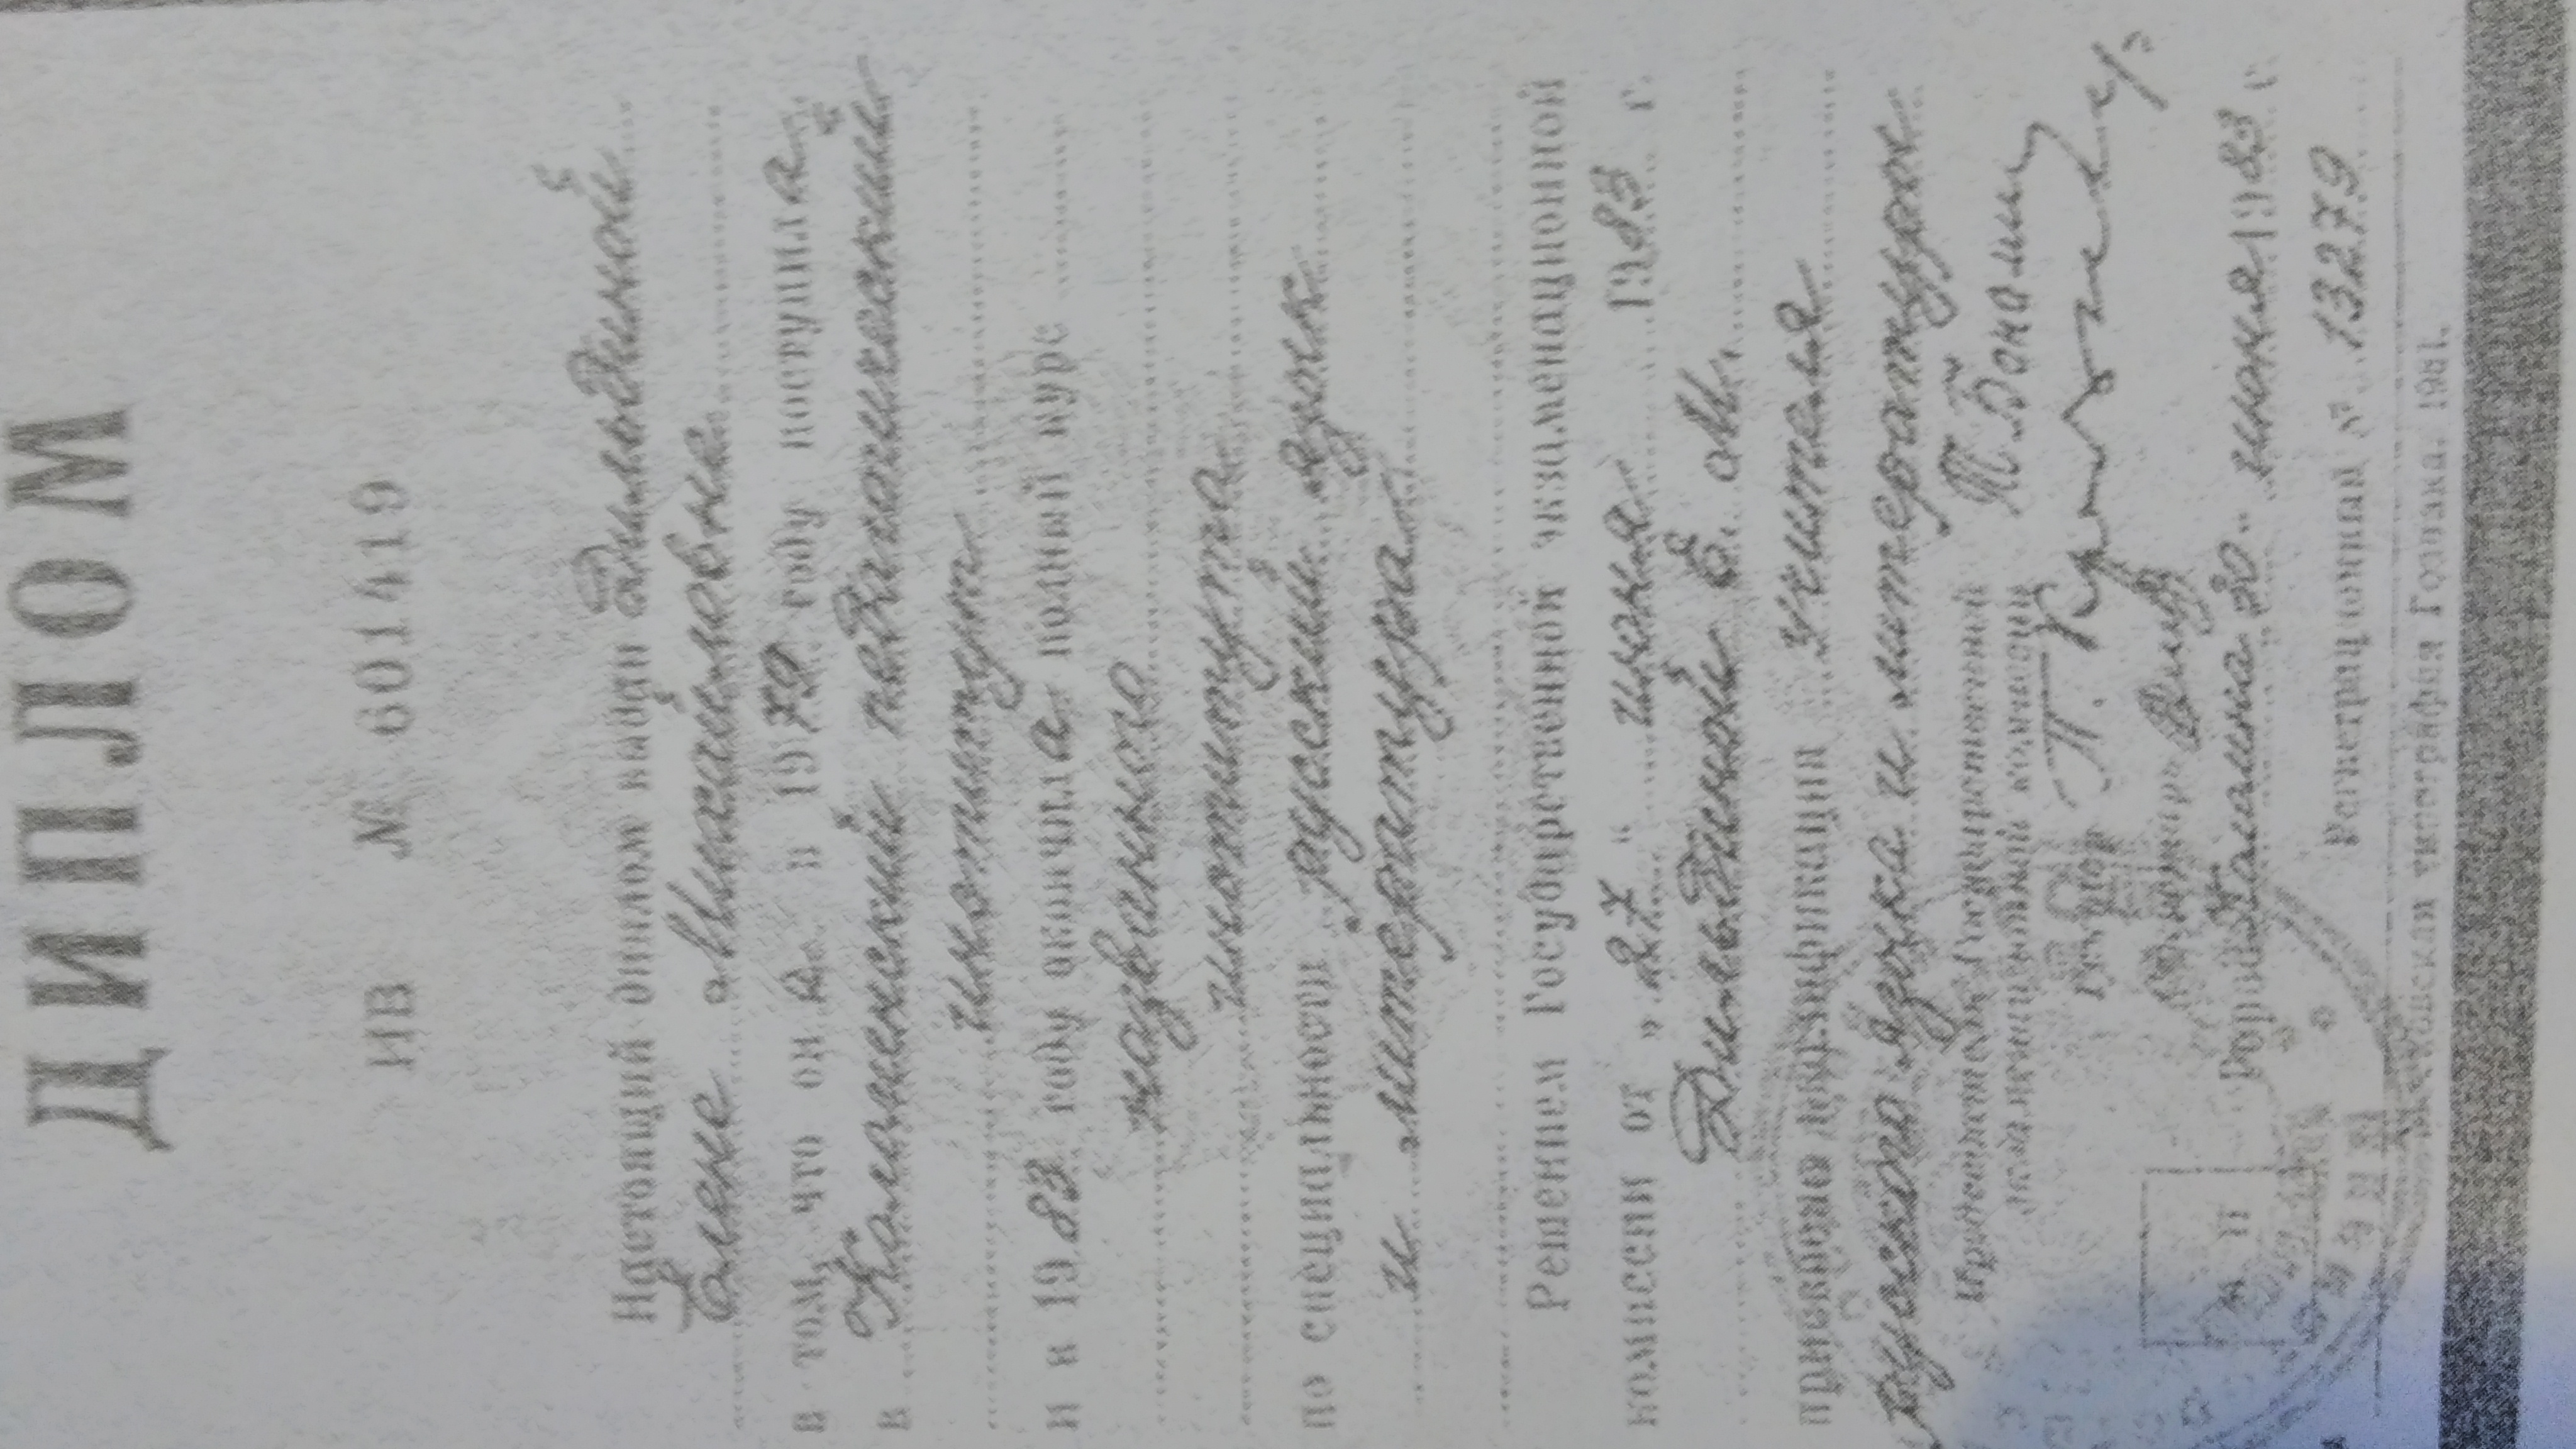 ДИПЛОМ
ИВ № 601419
Настоящий диплом выдан Дильдиной
Елене Михайловне
в том, что он а в 1979 году поступила
в Калмыцкий педагогический
институт
и в 1983 году окончила полный курс
названного
института
по специальности русский язык
и литература
Решением Государственной экзаменационной
комиссии от „27“ июня 1983 г.
Дильдиной Е. М.
присвоена квалификация учителя
русского языка и литературы
Председатель Государственной
экзаменационной комиссии
Ректор
Секретарь
М. П.
Город июня 1983 г.
Регистрационный № 13279
Московская типография Гознака. 1981.